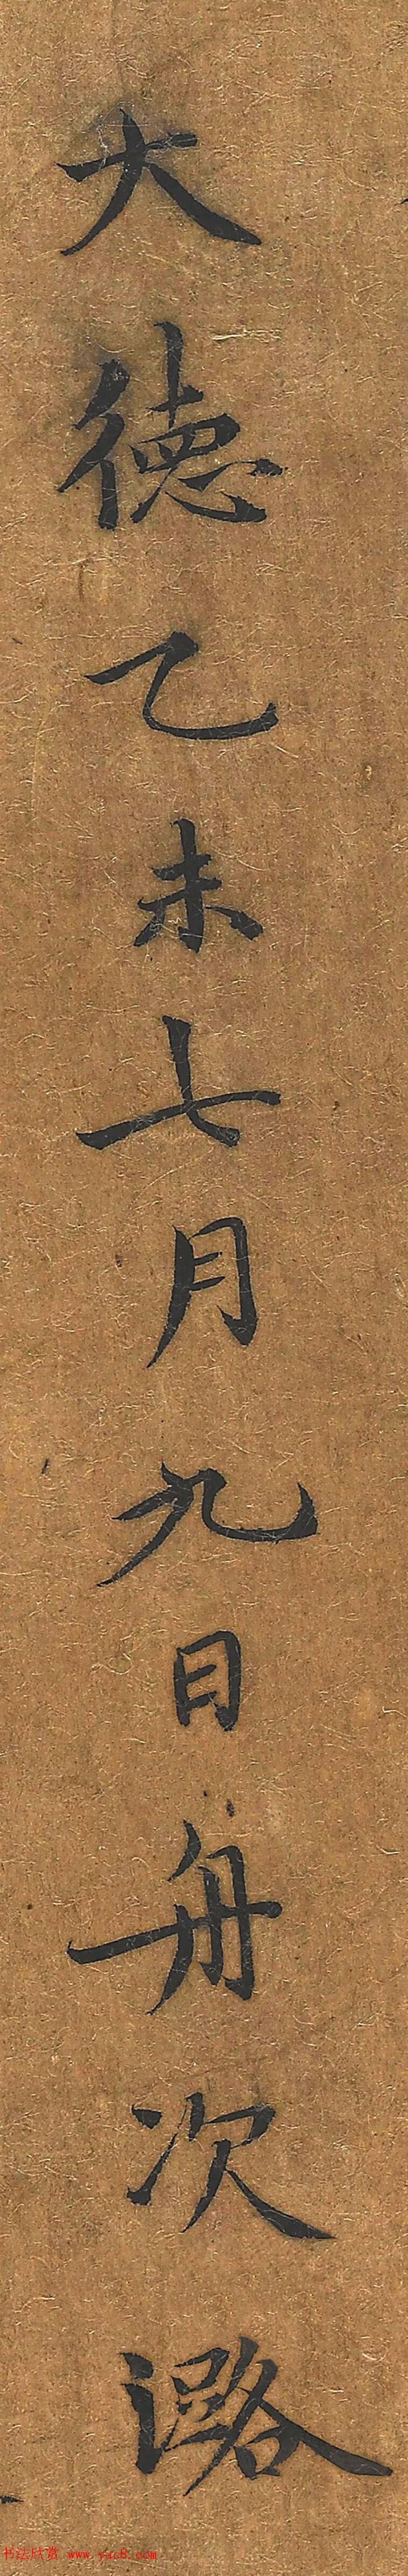 大德乙未七月九日舟次潞
书法欣赏 www.yac8.com